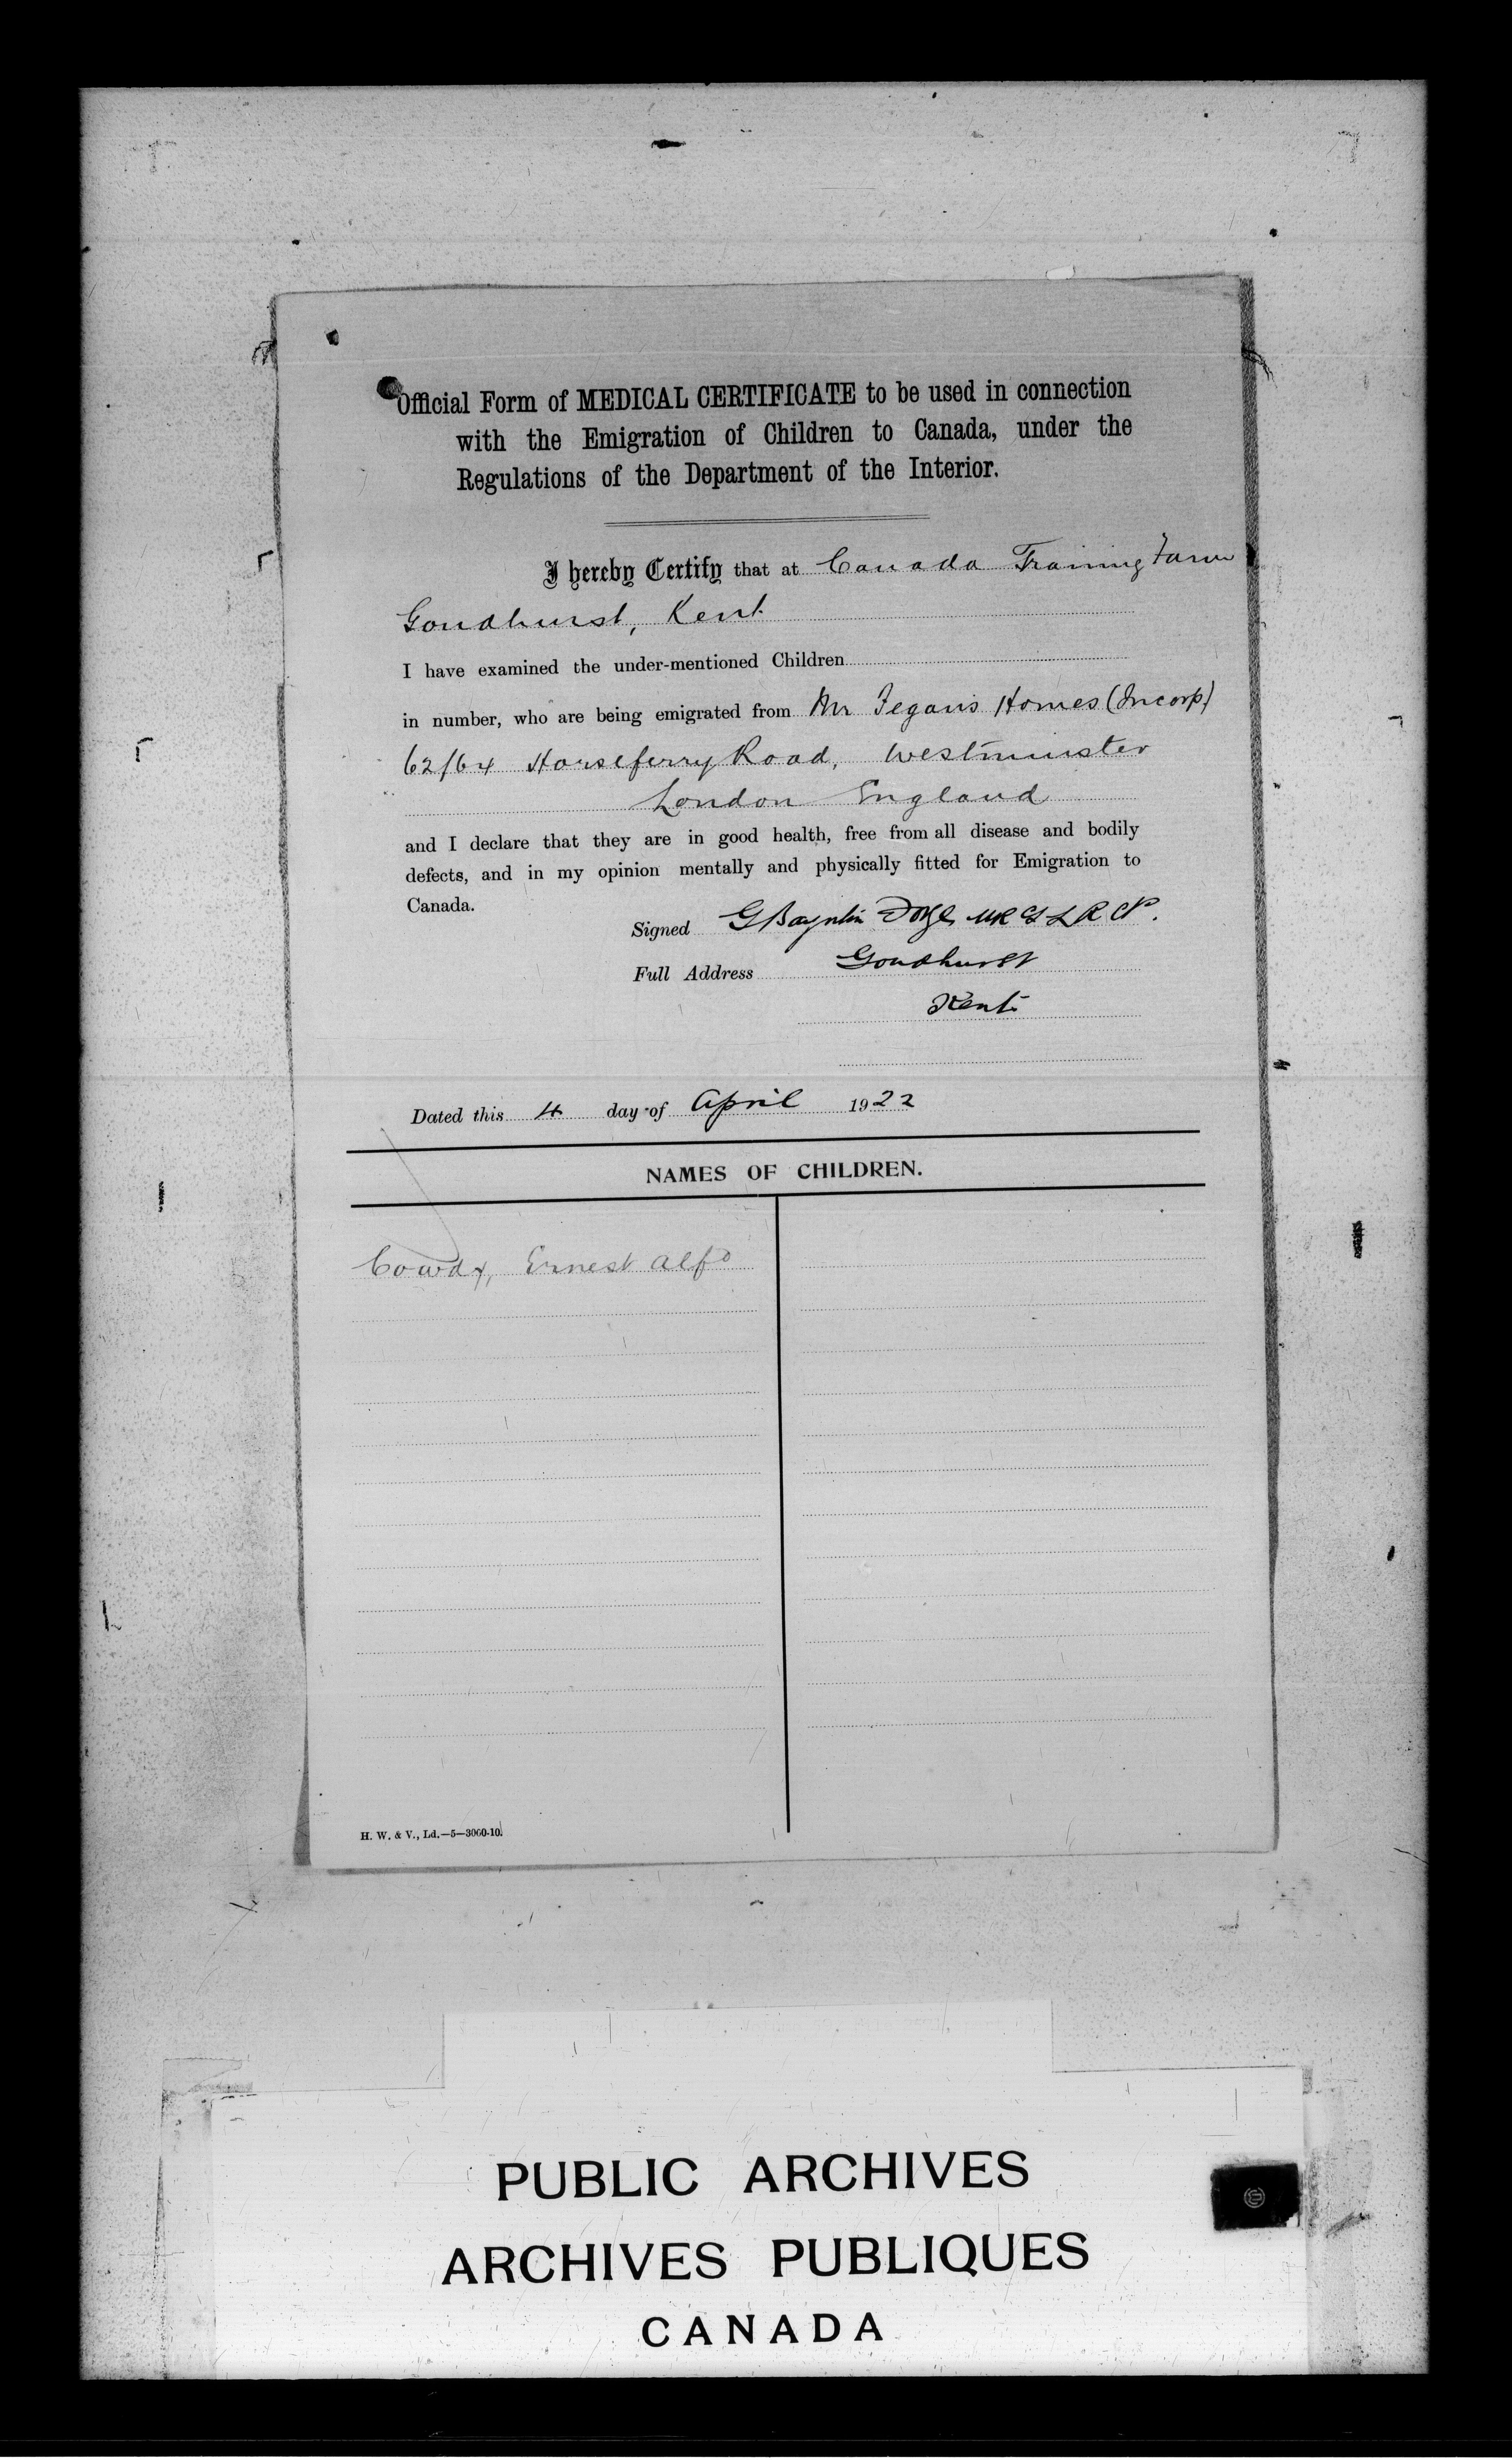 Official Form of MEDICAL CERTIFICATE to be used in connection
with the Emigration of Children to Canada, under the
Regulations of the Department of the Interior.
I hereby Certify that at Canada Training Farm
Goudhurst, Kent
I have examined the under-mentioned Children
in number, who are being emigrated from Mr Fegan's Homes (Incorp)
62/64 Horseferry Road, Westminster
London England
and I declare that they are in good health, free from all disease and bodily
defects, and in my opinion mentally and physically fitted for Emigration to
Canada.
Signed G MRCS LRCP.
Full Address Goudhurst
Kent
Dated this 4 day of April 1922
NAMES OF CHILDREN.
Cowdy, Ernest Alfd
H. W. & V., Ld.—5—3000-10.
PUBLIC ARCHIVES
ARCHIVES PUBLIQUES
CANADA